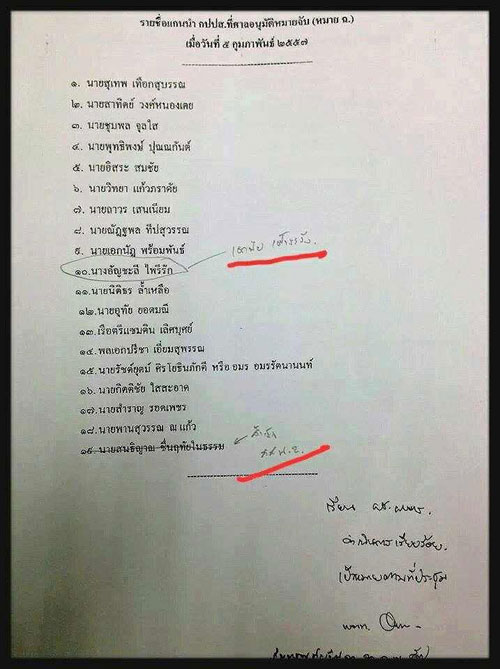 รายชื่อแกนนำ กปปส.ที่ศาลอนุมัติหมายจับ (หมาย ฉ.)
เมื่อวันที่ ๕ กุมภาพันธ์ ๒๕๕๗
๑. นายสุเทพ เทือกสุบรรณ
๒. นายสาทิตย์ วงศ์หนองเตย
๓. นายชุมพล จุลใส
๔. นายพุทธิพงษ์ ปุณณกันต์
๕. นายอิสระ สมชัย
๖. นายวิทยา แก้วภราดัย
๗. นายถาวร เสนเนียม
๘. นายณัฏฐพล ทีปสุวรรณ
๙. นายเอกนัฏ พร้อมพันธ์
๑๐.นางอัญชะลี ไพรีรัก
๑๑.นายนิติธร ล้ำเหลือ
๑๒.นายอุทัย ยอดมณี
๑๓.เรือตรีแซมดิน เลิศบุศย์
๑๔.พลเอกปรีชา เอี่ยมสุพรรณ
๑๕.นายรัชต์ยุตม์ ศิรโยธินภักดี หรือ อมร อมรรัตนานนท์
๑๖.นายกิตติชัย ใสสะอาด
๑๗.นายสำราญ รอดเพชร
๑๘.นายพานสุวรรณ ณ แก้ว
๑๙ นายสนธิญาณ ชื่นฤทัยในธรรม
เรียน
ดำเนินการเรียบร้อย.
เป้าหมายตามที่ประชุม